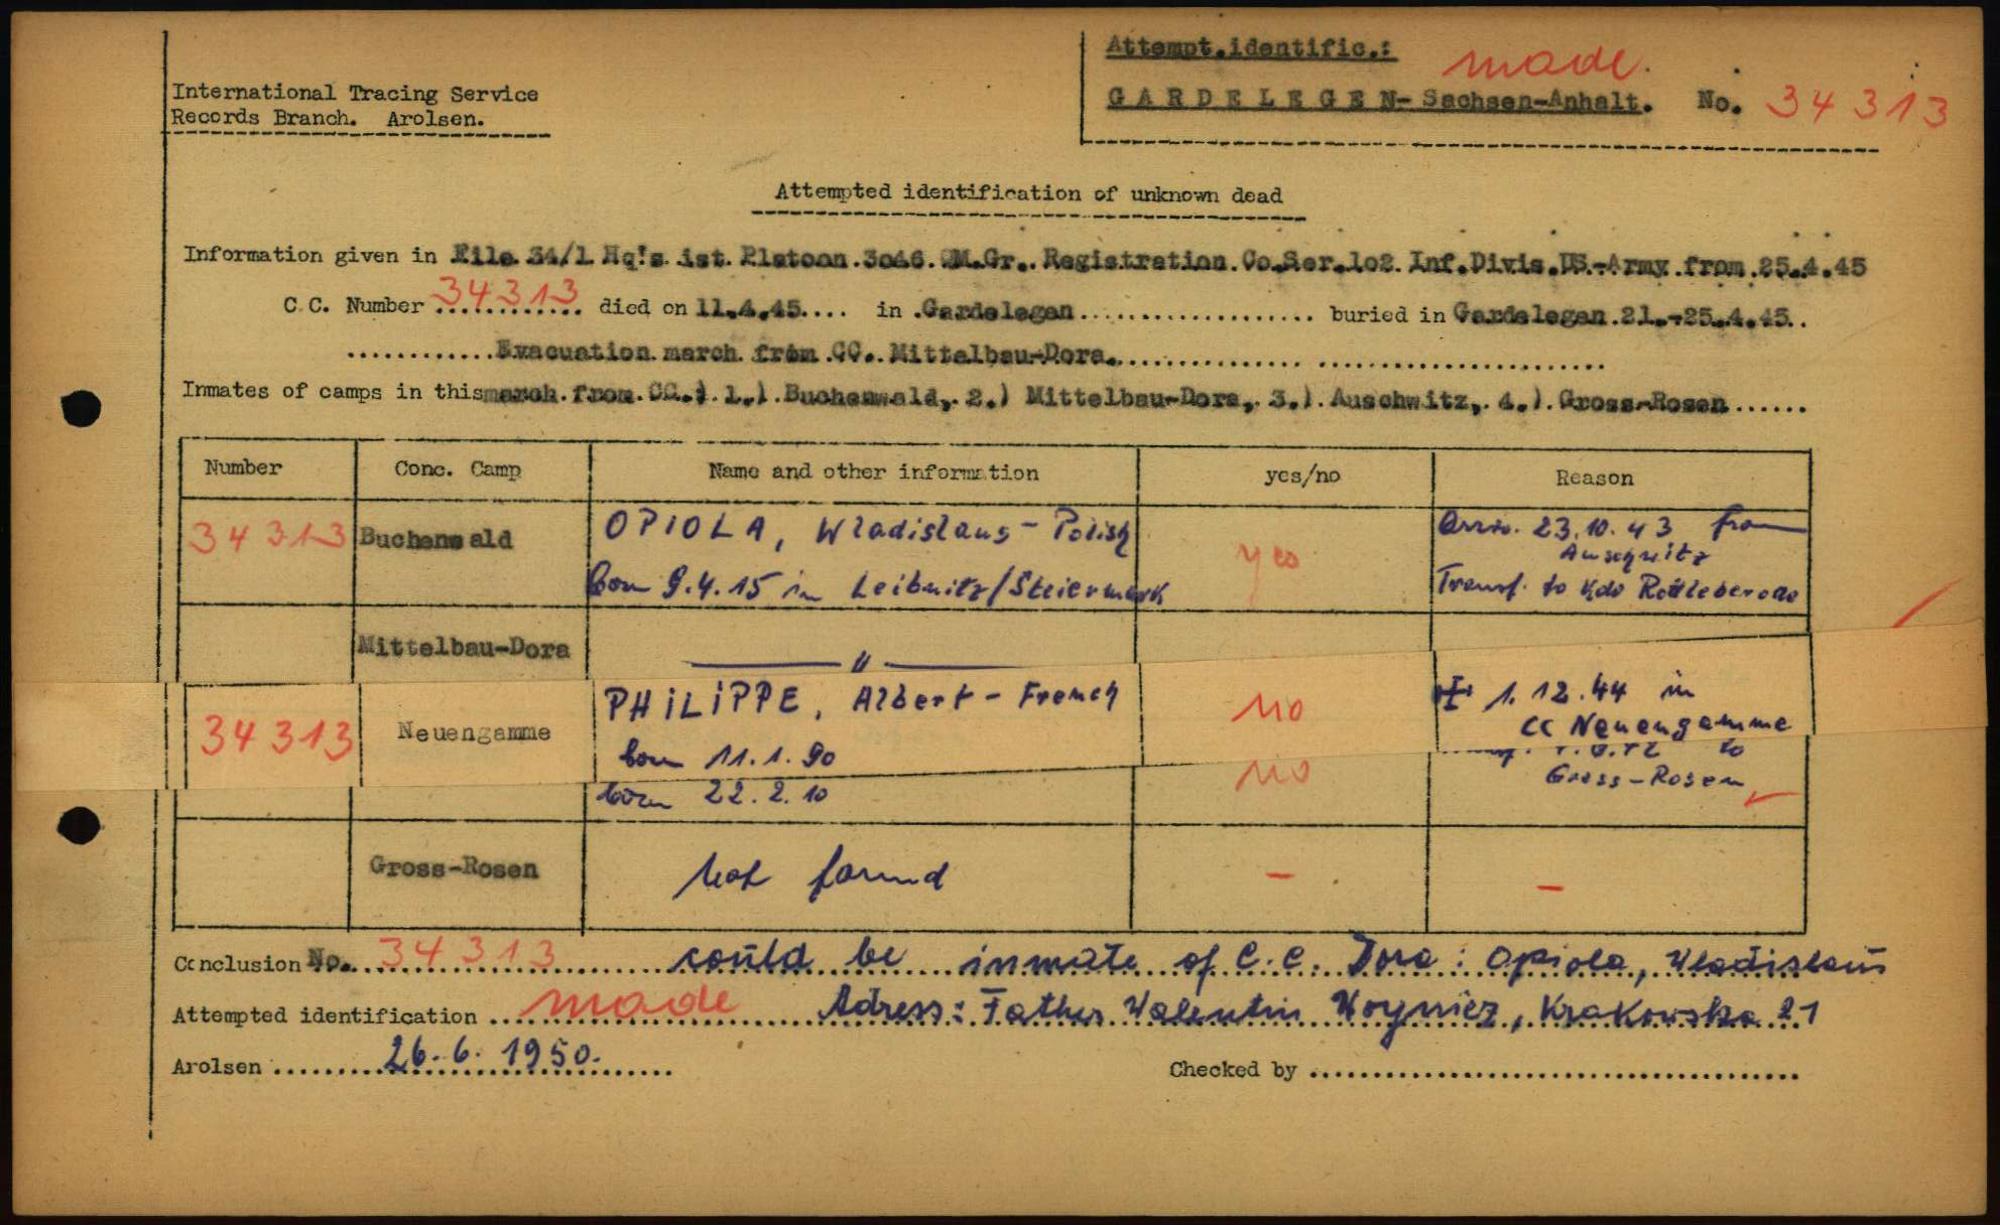 Attempt.identific.: made.
International Tracing Service
GARDELEGEN- Sachsen-Anhalt. No. 34313
Records Branch. Arolsen.
Attempted identification of unknown dead
Information given in File 34/1 Hq's ist. Platoon. 3046. QM.Gr.. Registration. Co.Ser.102. Inf.Divis.US.-Army from 25.4.45
C.C. Number 34313 died on 11.4.45.... in .Gardelegen................... buried in Gardelegen.21.-25.4.45..
............Evacuation march from CC. Mittelbau-Dora....................................
Inmates of camps in this march. from. CC.). 1.). Buchenwald,. 2.) Mittelbau-Dora,. 3.). Auschwitz,. 4.). Gross-Rosen......
Number Conc. Camp Name and other information yes/no Reason
34313 Buchenwald OPIOLA, Wladislaus - Polish yes Arriv. 23.10.43 from
Auschwitz
born 9.4.15 in Leibnitz/Steiermark Transf. to Kdo Rottleberode
Mittelbau-Dora — " —
34313 Neuengamme PHILIPPE, Albert - French no 1.12.44 in
CC Neuengamme
born 11.1.90
to
born 22.2.10 no Gross-Rosen
Gross-Rosen not found - -
Conclusion No. 34313 could be inmate of C.C. Dora: Opiola, Wladislaus
Attempted identification made Adress: Father Walentin Krakowska 21
Arolsen 26.6.1950.
Checked by